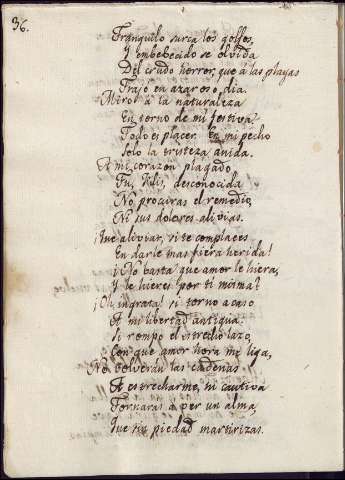 36.
Tranquilo surca los golfos,
Y embebecido se olvida
Del crudo horror, que á las playas
Trajo en azaroso dia.
Miro á la naturaleza
En torno de mi festiva
Todo es placer. En mi pecho
Solo la tristeza anida.
A mi corazon plagado
Tu, Filis, desconocida
No procuras el remedio,
Ni sus dolores alivias.
¡Que aliviar, si te complaces
En darle mas fiera herida!
¿No basta que amor le hiera,
Y le hieres por ti misma?
¡Oh ingrata! si torno acaso
A mi libertad antigua:
Si rompo el estrecho lazo,
Con que amor hora me liga,
No volverán las cadenas
A estrecharme, ni cautiva
Tornarás a ver un alma,
Que sin piedad martirizas.